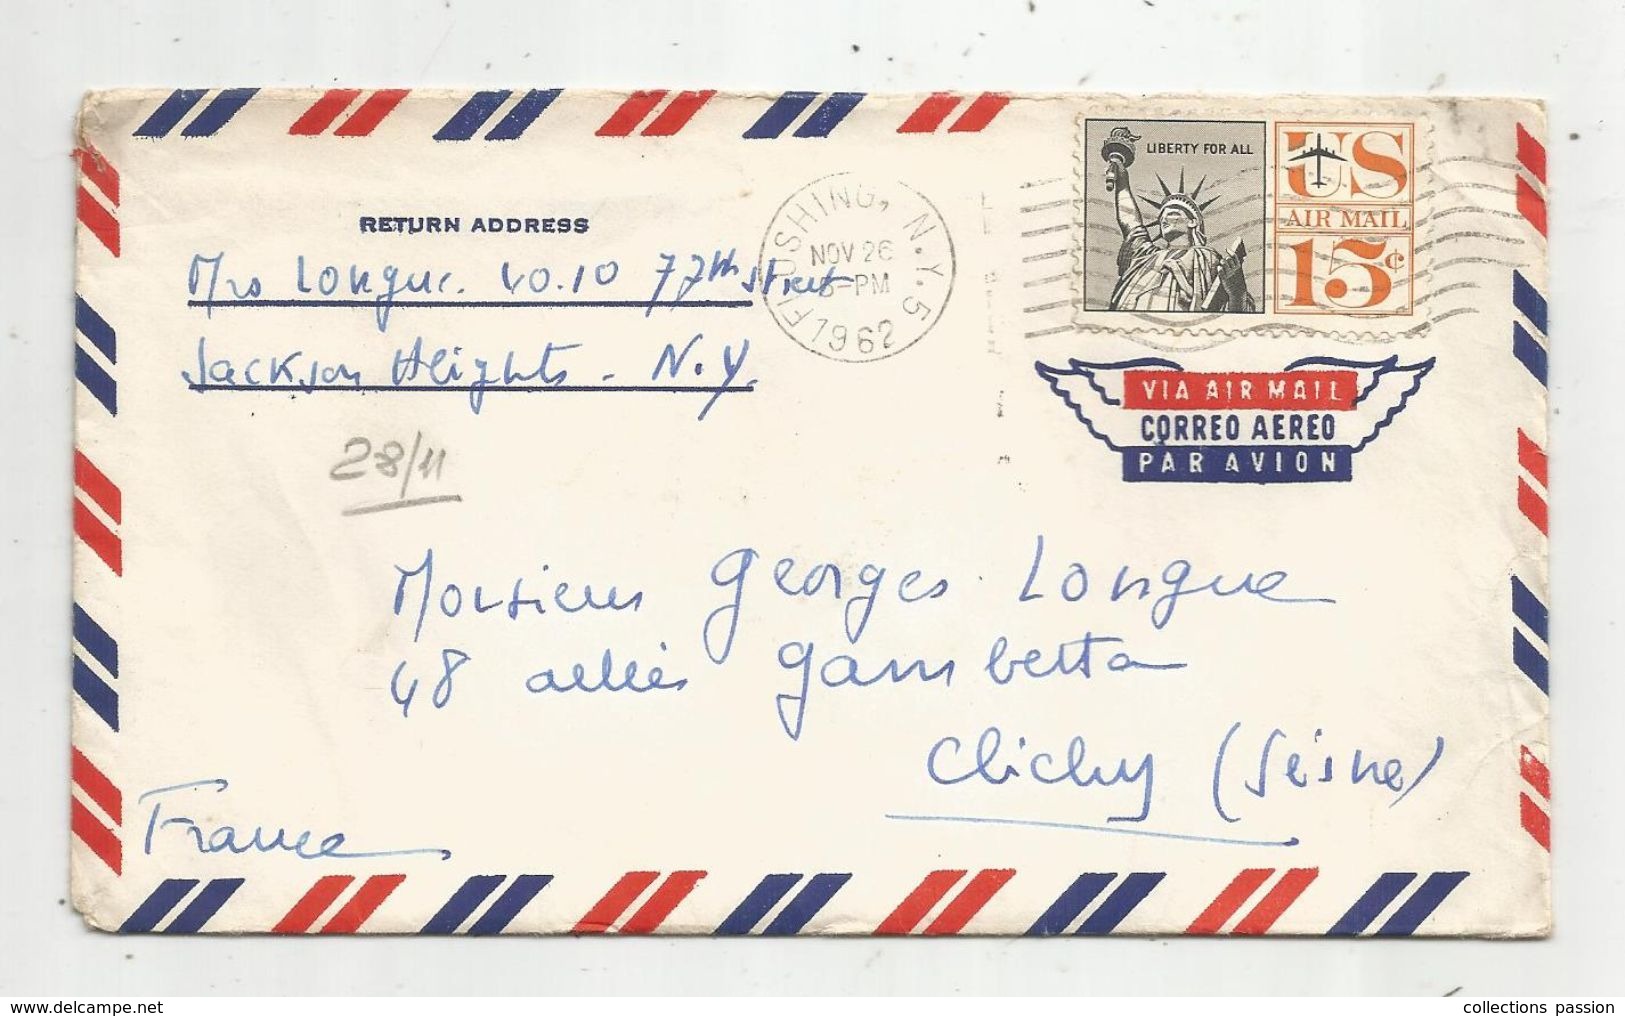 RETURN ADDRESS
Mrs Longue. 40.10 77th Street
Jackson Heights - N.Y.
FLUSHING, N.Y. 5
NOV 26
PM
1962
LIBERTY FOR ALL
US
AIR MAIL
15¢
VIA AIR MAIL
CORREO AEREO
PAR AVION
28/11
Monsieur Georges Longue
48 allées Gambetta
Clichy (Seine)
France
collections passion